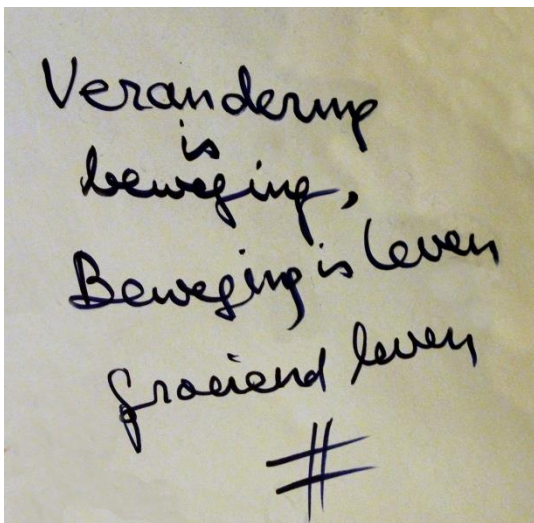 Verandering
is
beweging,
Beweging is leven
groeiend leven
#